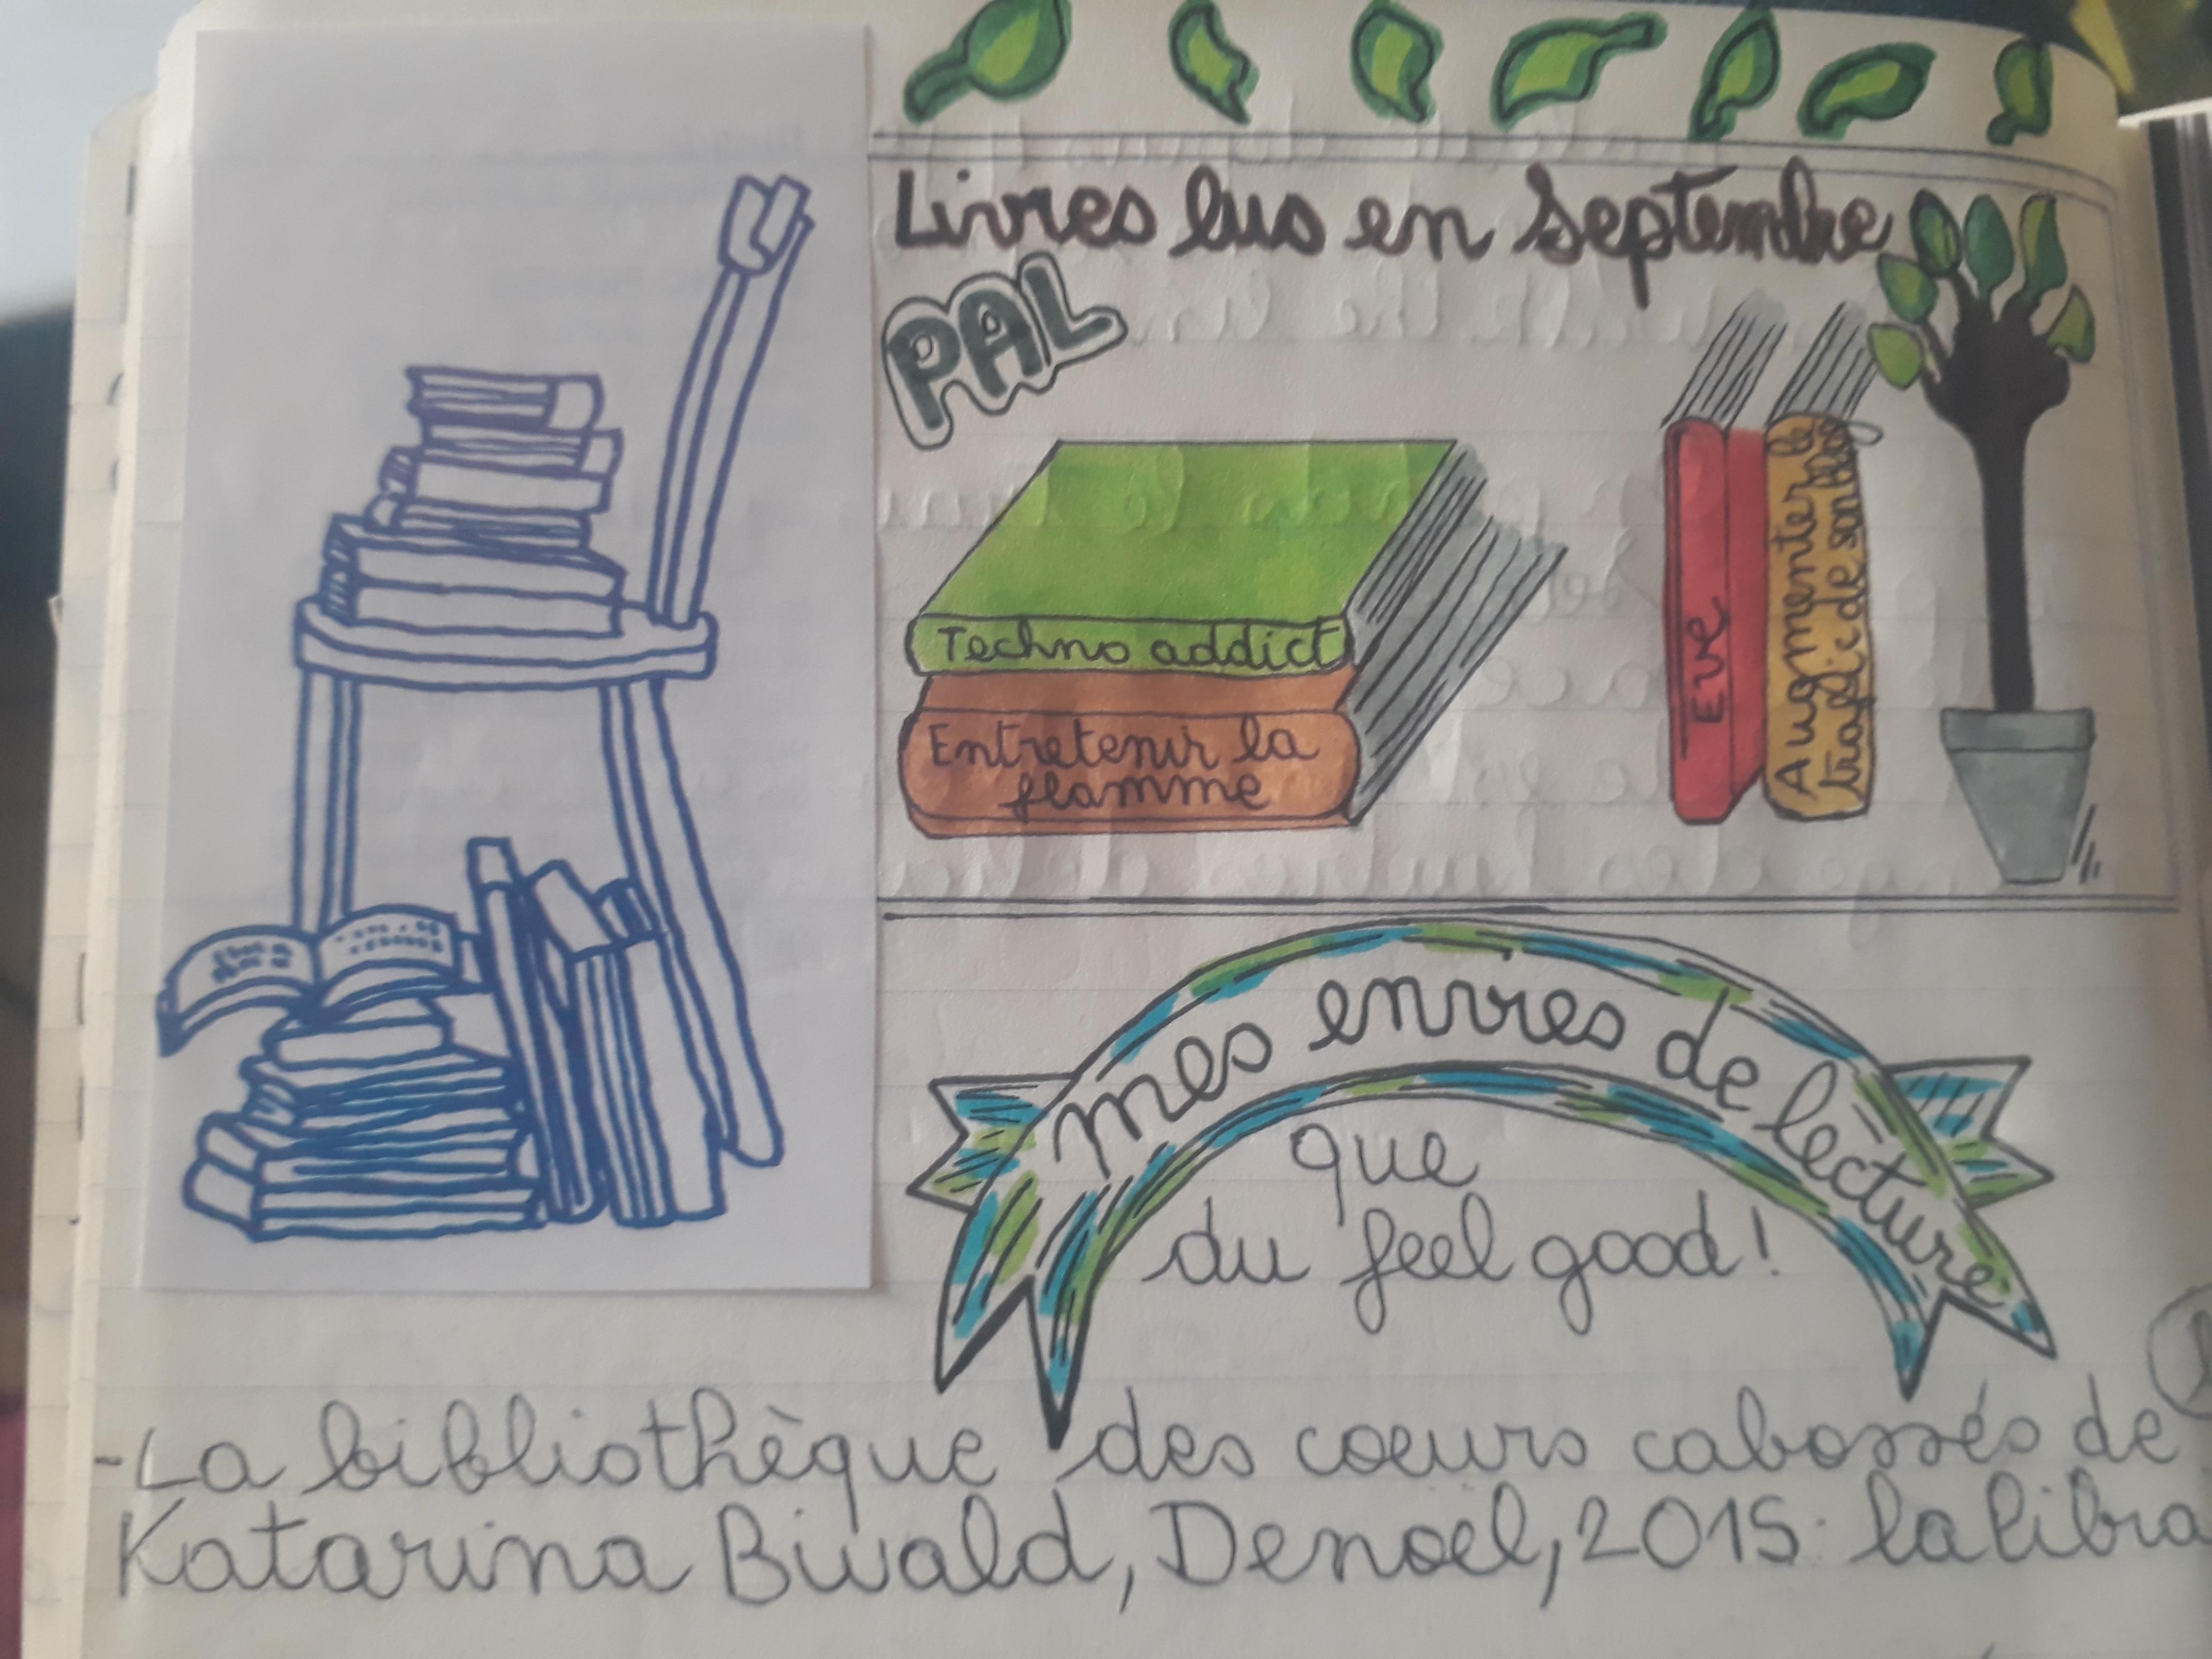 Livres lus en Septembre
PAL
Techno addict
Entretenir la
flamme
Eve
Augmenter le
trafic de son blog
mes envies de lecture
que
du feel good!
-La bibliothèque des coeurs cabossés de
Katarina Bivald, Denoël, 2015: la libra